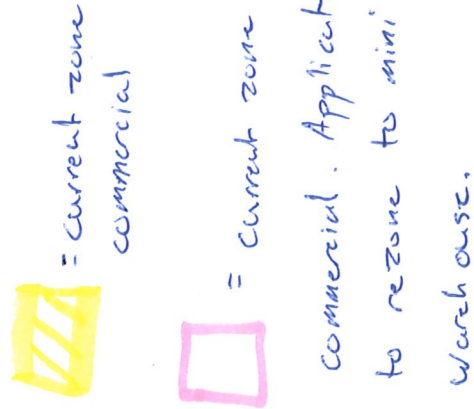 = current zone
commercial
= Current zone
commercial. Applicant
to rezone to mini
warehouse.